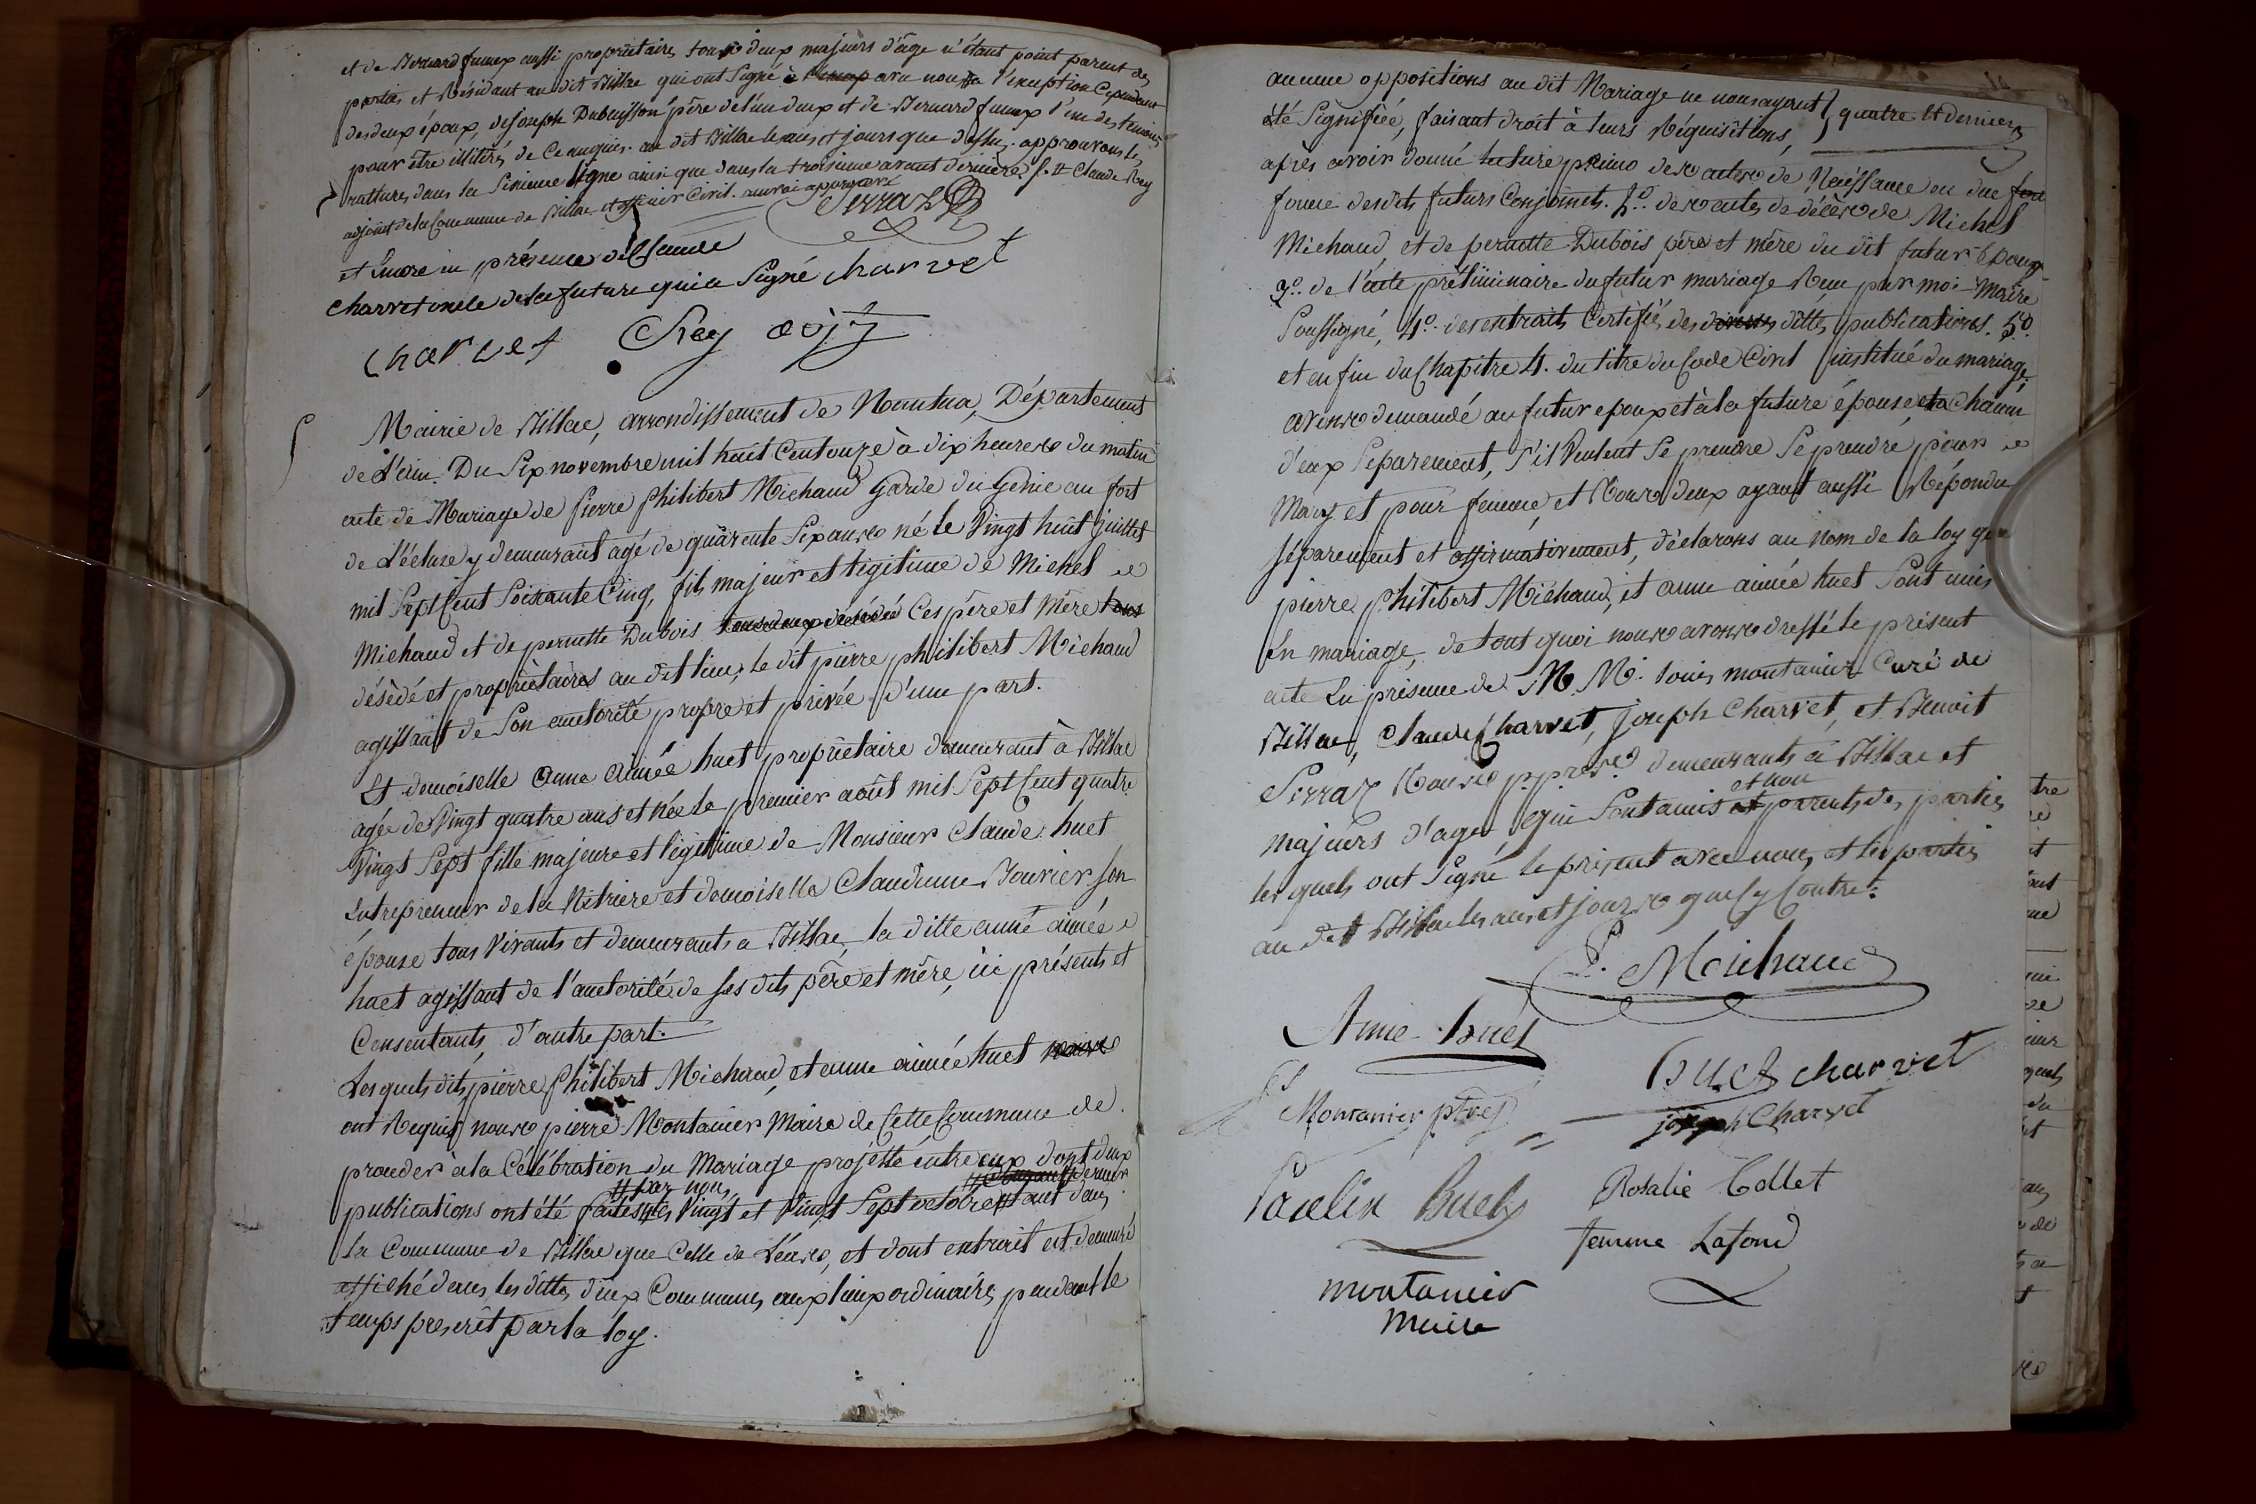 et de Bernard fumex aussi propriétaires tous deux majeurs d'âge n'étant point parent des
parties et Résidant au dit Billiac qui ont Signé à avec nous à l'exception Cependant
des deux époux, de Joseph Dubuisson père de l'un deux et de Bernard fumex l'un des temoins
pour être illitérés de Ce enquis. au dit Billiac les ans et jours que dessus. approuvons les
rattures dans la Sixieme ligne ainsi que dans la troisieme avant dernière f. et Claude Rey
adjoint de la Commune de Billiac et officier Civil.
Serraz
et Encore en présence de Claude
Charvet oncle de la future qui a Signé charvet
charvet Rey adjt
Mairie de Billiac, arrondissement de Nantua, Département
de L'ain. Du Six novembre mil huit Cent onze à dix heures du matin
acte de Mariage de pierre philibert Michaud Garde du Génie au fort
de L'écluse y demeurant agé de quarente Six ans né le Vingt huit Juillet
mil Sept Cent Soixante Cinq, fils majeur et légitime de Michel
Michaud et de pernette Dubois tous deux désédé Ces père et Mère tous
désédé et propriétaires au dit lieu, le dit pierre philibert Michaud
agissant de Son autorité propre et privée d'une part.
Et demoiselle anne aimée huet propriétaire demeurant à Billiac
agée de Vingt quatre ans et née le premier août mil Sept Cent quatre
Vingt Sept fille majeure et légitime de Monsieur Claude huet
Entrepreneur de la Vitriere et demoiselle Claudinne Bouvier Son
épouse tous Vivants et demeurants a Billiac, la ditte anne aimée
huet agissant de l'autorité de Ses dits père et mère, ici présents et
Consentants, d'autre part.
Lesquels dits pierre philibert Michaud, et anne aimée huet nous
ont Requis nous pierre Montanier Maire de Cette Commune de
proceder à la Célébration du Mariage projétté entre eux dont deux
par nous
publications ont été faites les Vingt et Vingt Sept octobre tant dans
La Commune de Billiac que Celle de Léaz, et dont extrait est demeuré
affiché dans les dittes deux Communes aux lieux ordinaires pendant le
temps prescrit par la loy.
aucune oppositions au dit Mariage ne nous ayant quatre et derniere
été Signifiéé, faisant droit à leurs Réquisitions,
après avoir donné lecture primo des actes de Naissance ou due
forme desdits futurs Conjoints. 2º. des actes de décès de Michel
Michaud, et de pernette Dubois père et mère du dit futur Epoux
3º. de l'acte préliminaire du futur mariage Reçu par moi Maire
Soussigné, 4º. des extraits Certifiés des diverses dittes publications. 5º.
et en fin du Chapitre 4. du titre du Code Civil institué du mariage,
avons demandé au futur epoux et à la future épouse et a Chacun
d'eux Séparement, S'il Veulent Se prendre Se prendre pour
Mary et pour femme, et Tous deux ayant aussi Répondu
Séparement et affirmativement, déclarons au nom de la loy que
pierre philibert Michaud, et anne aimée huet Sont unis
En mariage, de tout quoi nous avons dressé le présent
acte En présence de M. M. louis montanier Curé de
Billiac, Claude Charvet, Joseph Charvet, et Benoit
Serraz Tous p.pres. demeurants à Billiac et
et non
majeurs d'age, qui Sont amis et parents des parties
les quels ont Signé le présent avec nous et les parties
au dit Billiac les ans et jours que Cy Contre.
P. Michaud
Aimé huet
huet charvet
Montanier ptre
joseph Charvet
Paulin huet
Rosalie Collet
femme Lafond
montanier
maire